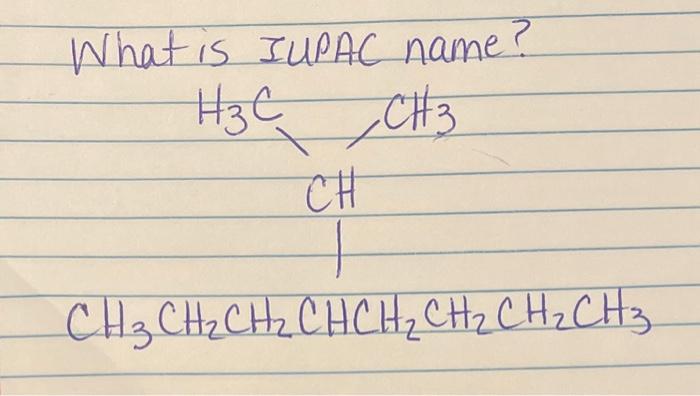 What is IUPAC name?
H3C CH3
CH
CH3CH2CH2CHCH2CH2CH2CH3